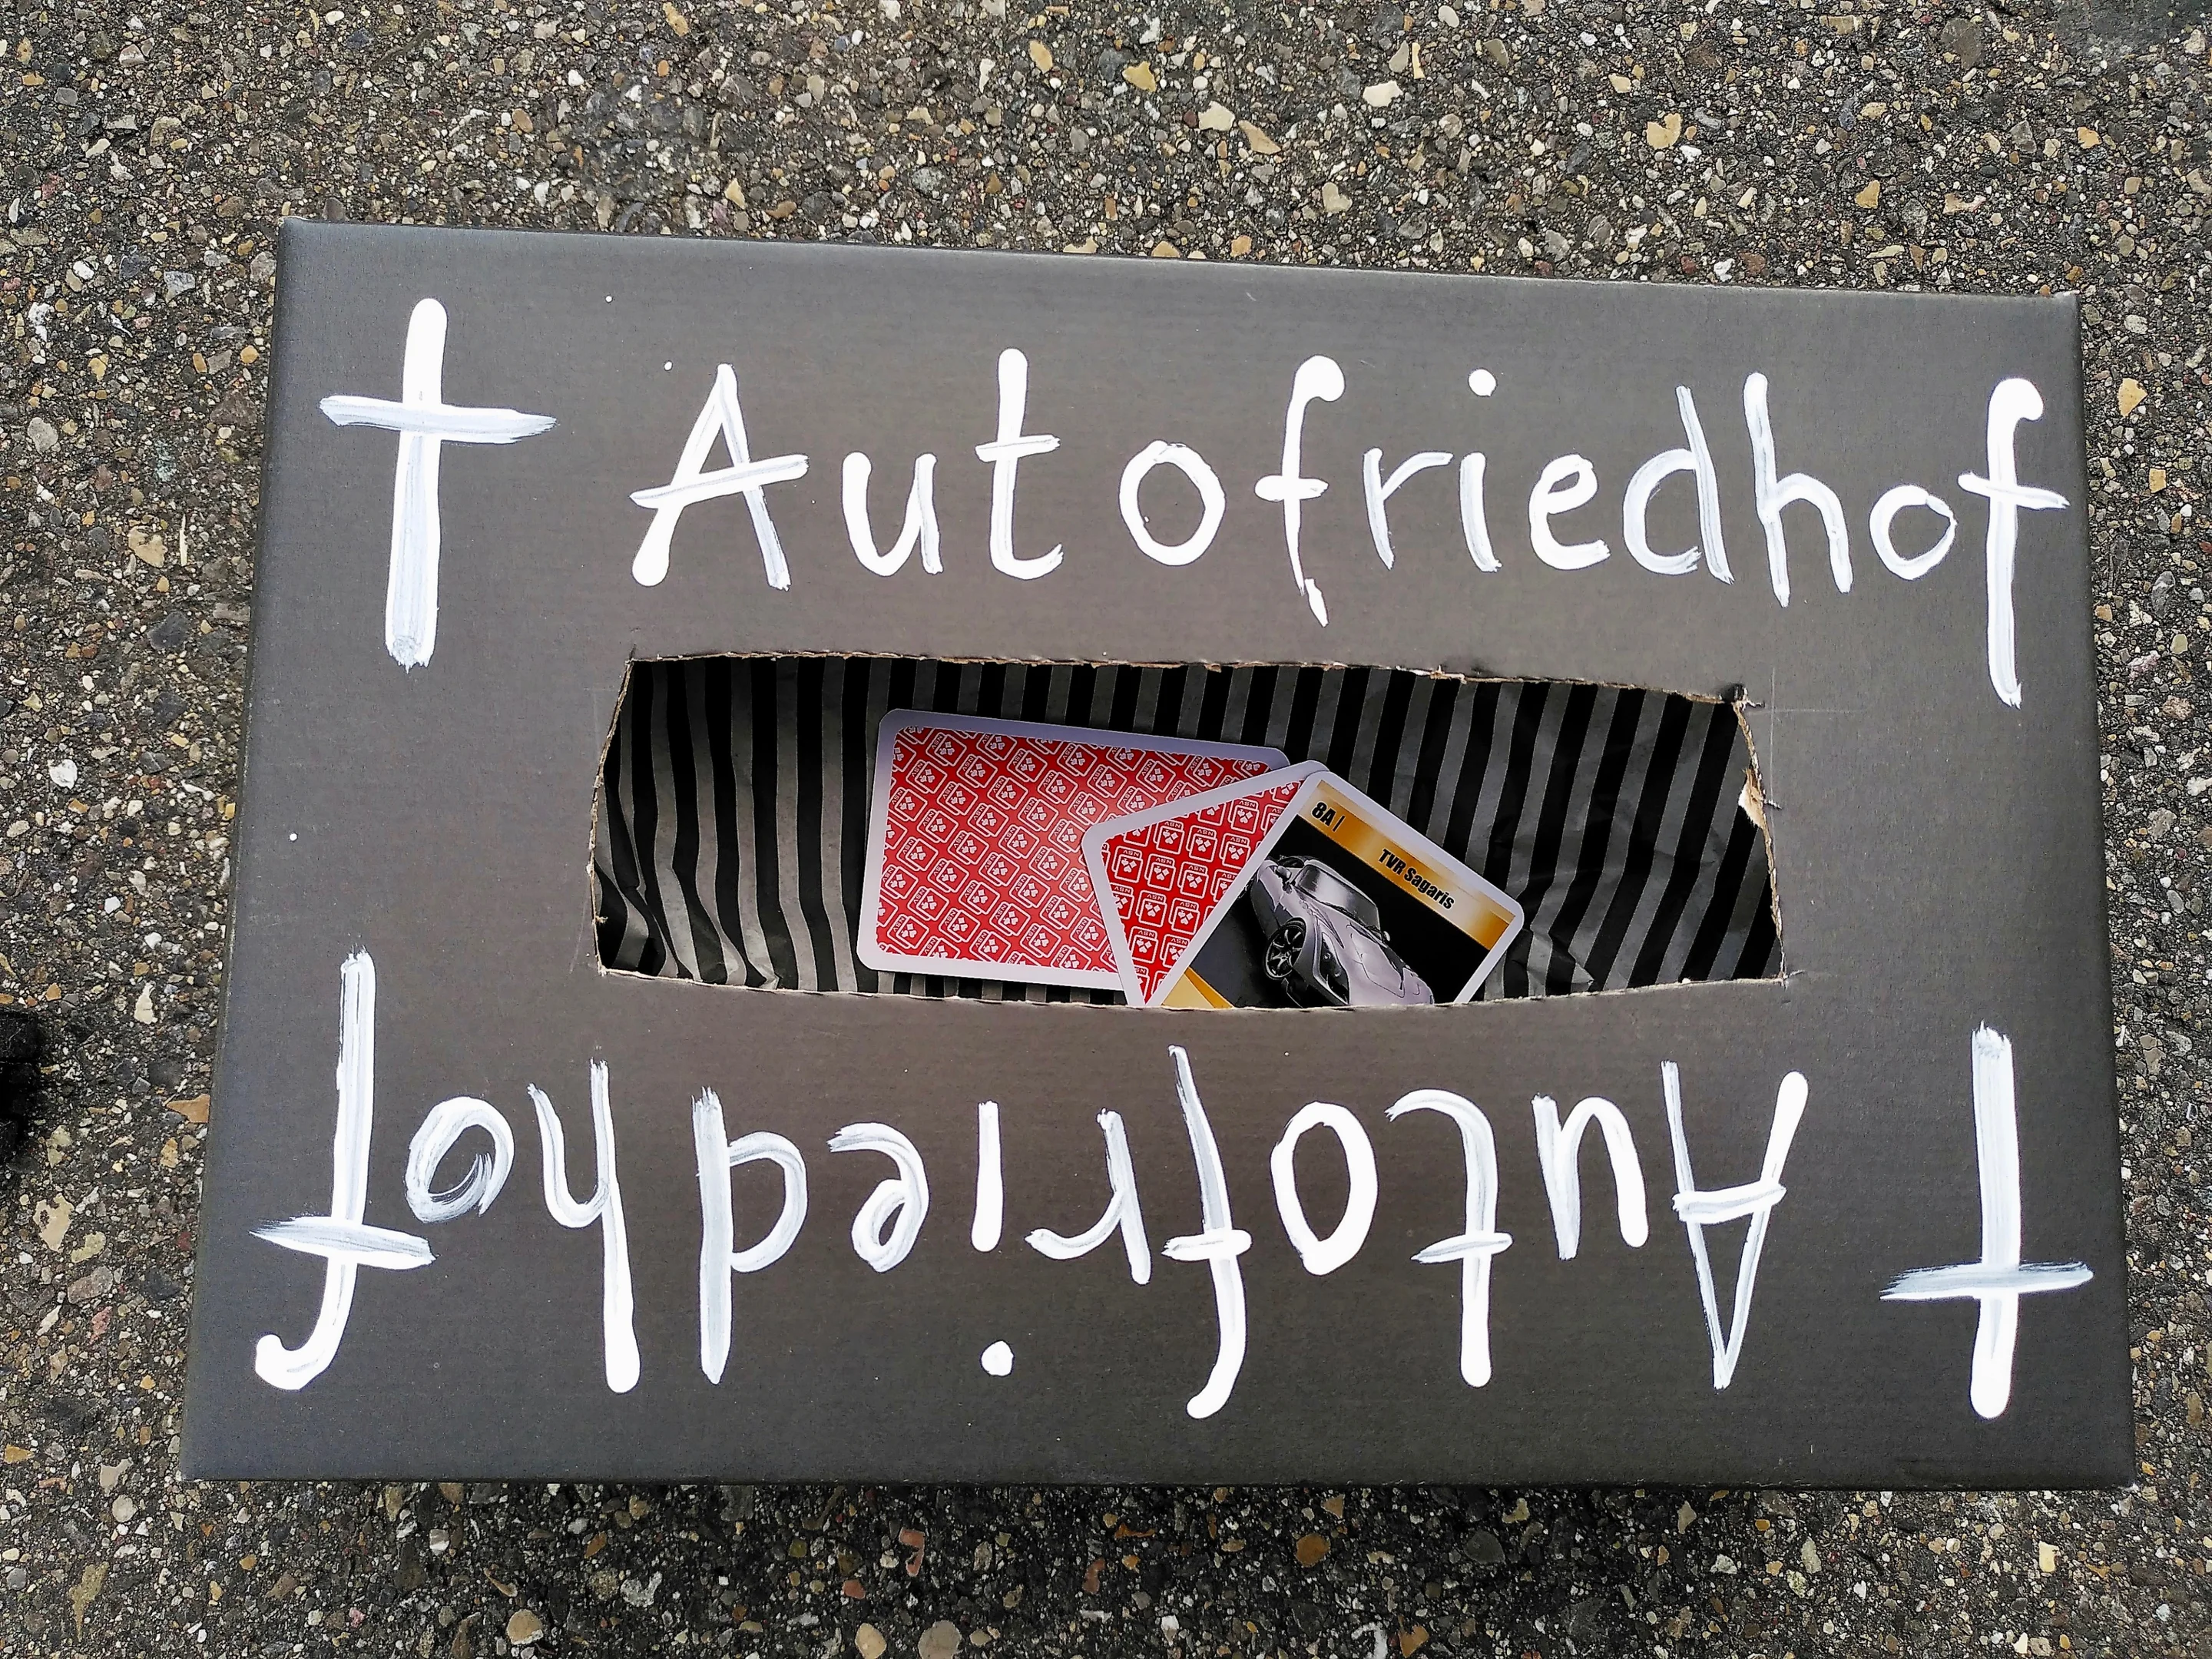 † Autofriedhof
8A |
TVR Sagaris
† Autofriedhof